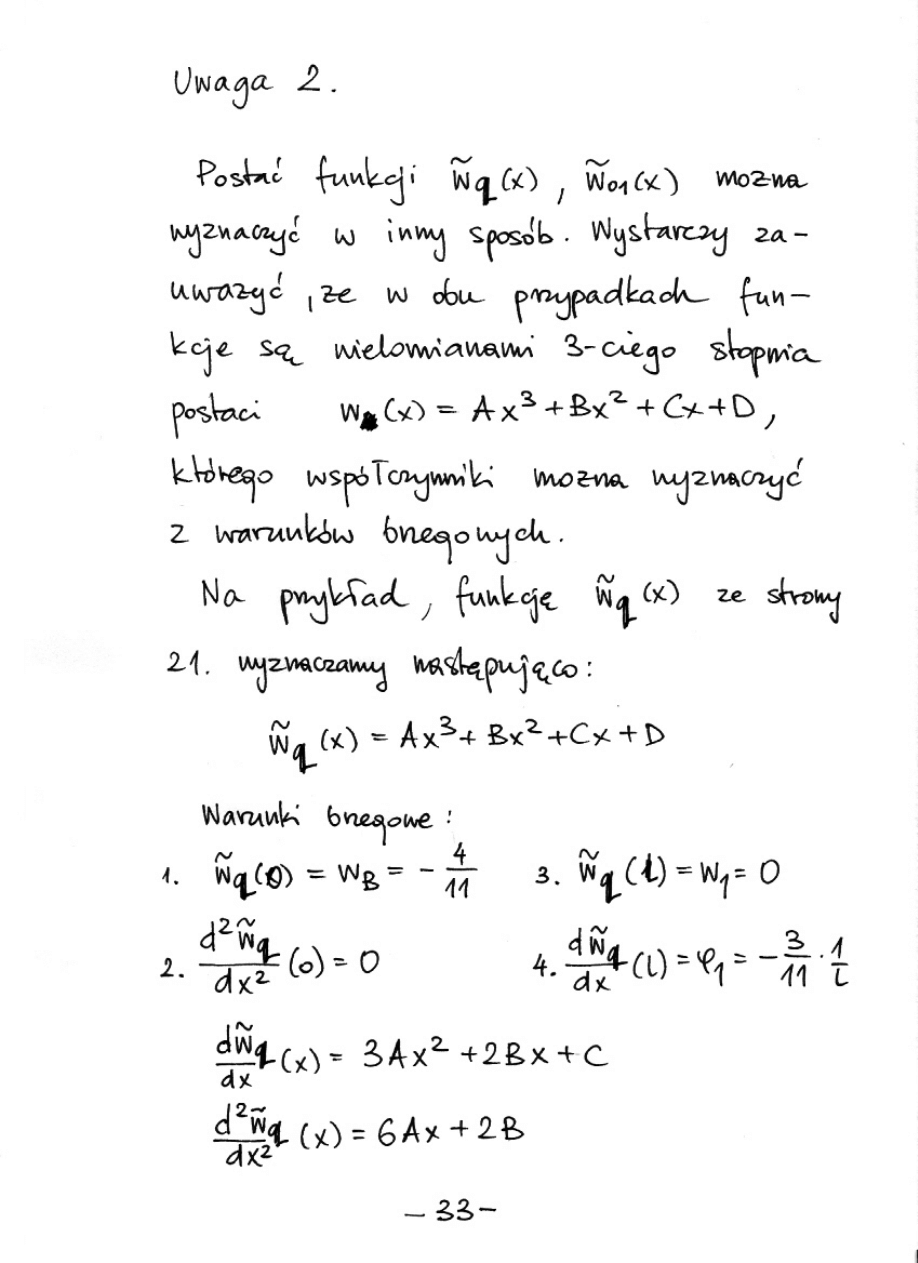 Uwaga 2.
Postać funkcji w̃q(x), w̃01(x) można
wyznaczyć w inny sposób. Wystarczy za-
uważyć, że w obu przypadkach fun-
kcje są wielomianami 3-ciego stopnia
postaci w(x) = Ax³ + Bx² + Cx + D,
którego współczynniki można wyznaczyć
z warunków brzegowych.
Na przykład, funkcję w̃q(x) ze strony
21. wyznaczamy następująco:
w̃q(x) = Ax³ + Bx² + Cx + D
Warunki brzegowe:
1. w̃q(0) = wB = - 4/11 3. w̃q(l) = w1 = 0
2. d²w̃q/dx² (0) = 0 4. dw̃q/dx (l) = φ1 = - 3/11 · 1/l
dw̃q/dx (x) = 3Ax² + 2Bx + C
d²w̃q/dx² (x) = 6Ax + 2B
- 33 -